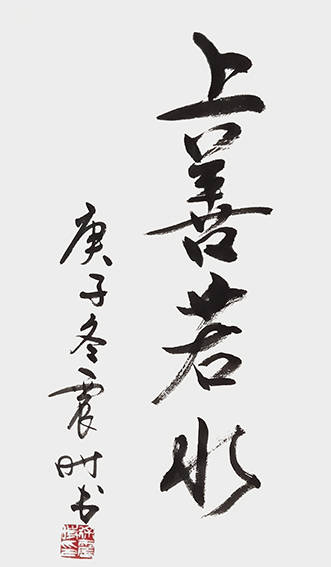 上善若水
庚子冬震时书